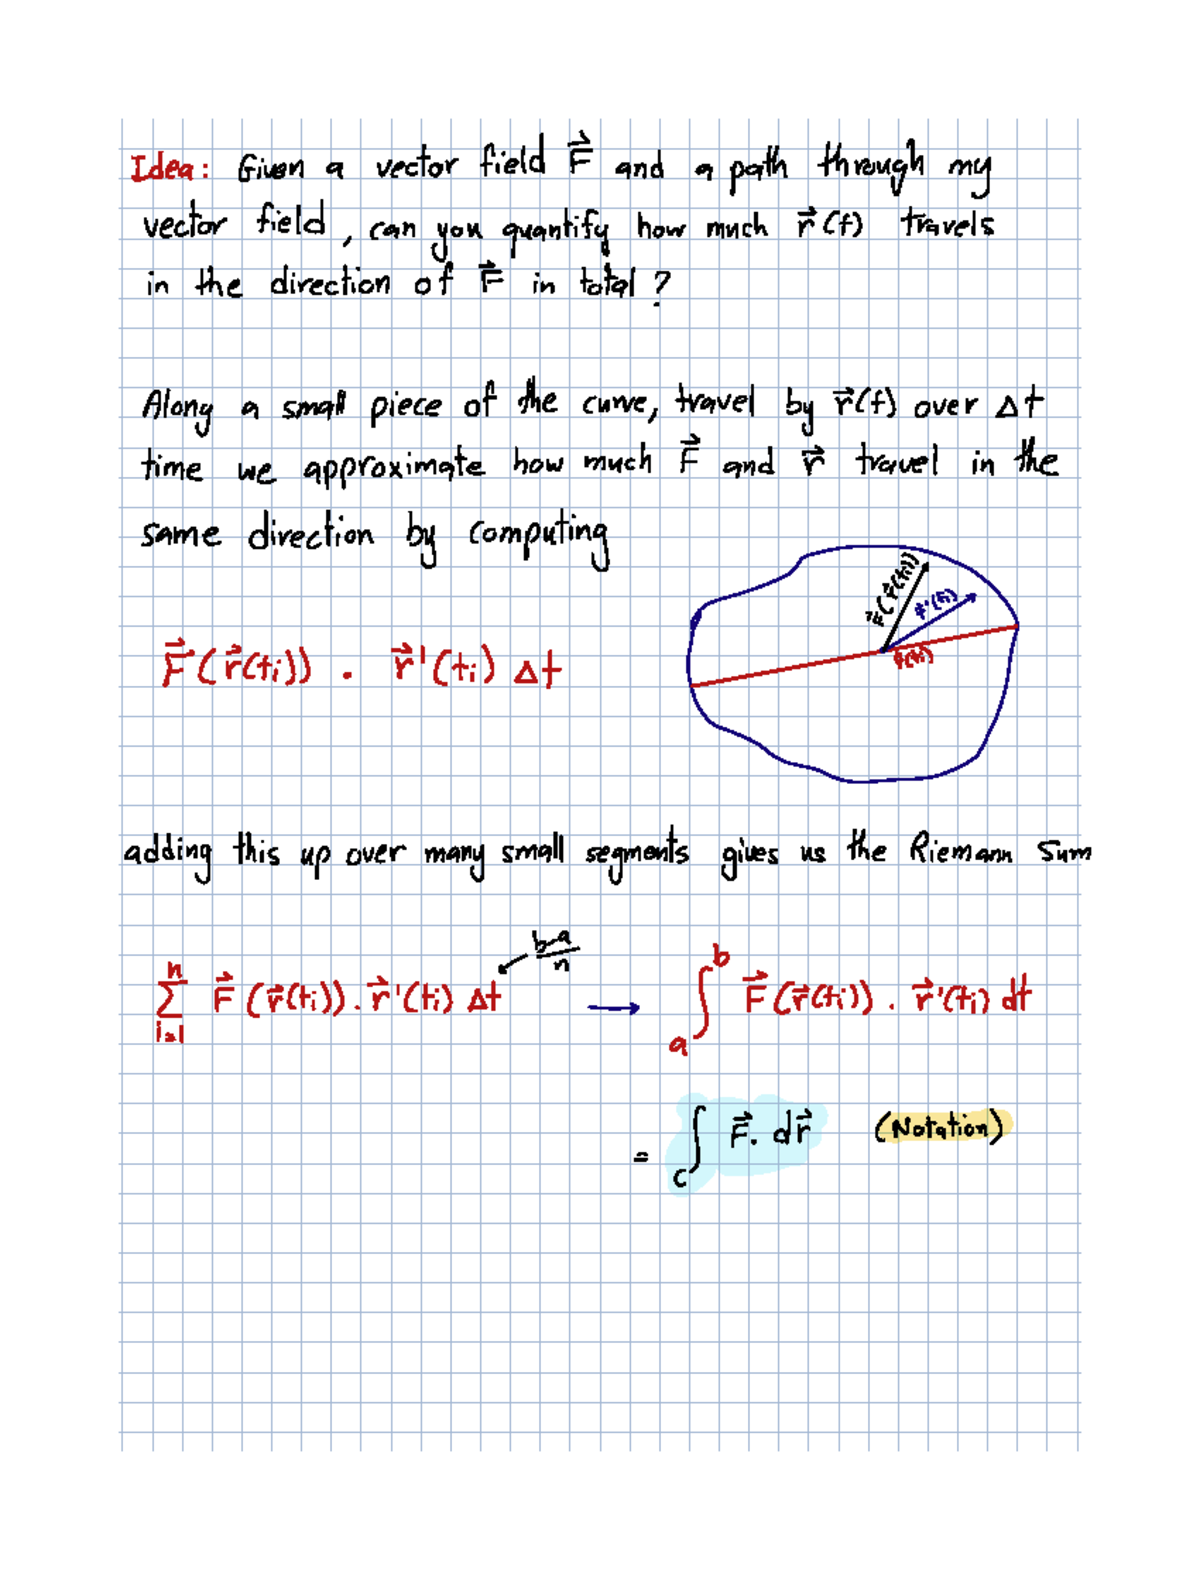 Idea: Given a vector field F⃗ and a path through my
vector field, can you quantify how much r⃗(t) travels
in the direction of F⃗ in total?
Along a small piece of the curve, travel by r⃗(t) over Δt
time we approximate how much F⃗ and r⃗ travel in the
same direction by computing
F⃗(r⃗(ti)) · r⃗'(ti) Δt
F⃗(r⃗(ti))
r⃗'(ti)
r⃗(ti)
adding this up over many small segments gives us the Riemann Sum
b-a/n
n Σ i=1 F⃗(r⃗(ti)) · r⃗'(ti) Δt → ∫ b a F⃗(r⃗(ti)) · r⃗'(ti) dt
= ∫ C F⃗ · dr⃗ (Notation)